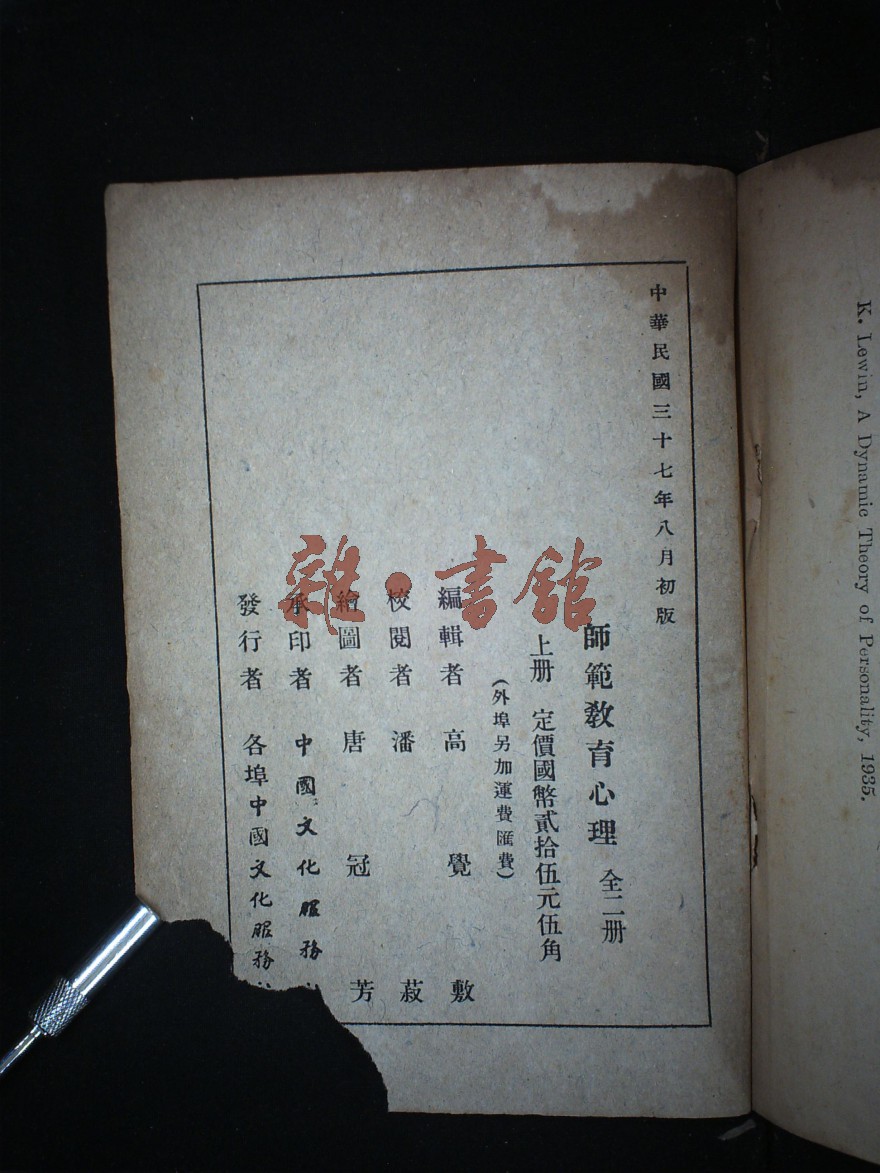 中華民國三十七年八月初版
師範教育心理 全二册
上册 定價國幣貳拾伍元伍角
(外埠另加運費匯費)
編輯者 高覺敷
校閱者 潘菽
繪圖者 唐冠芳
承印者 中國文化服務
發行者 各埠中國文化服務
雜·書舘
K. Lewin, A Dynamic Theory of Personality, 1935.